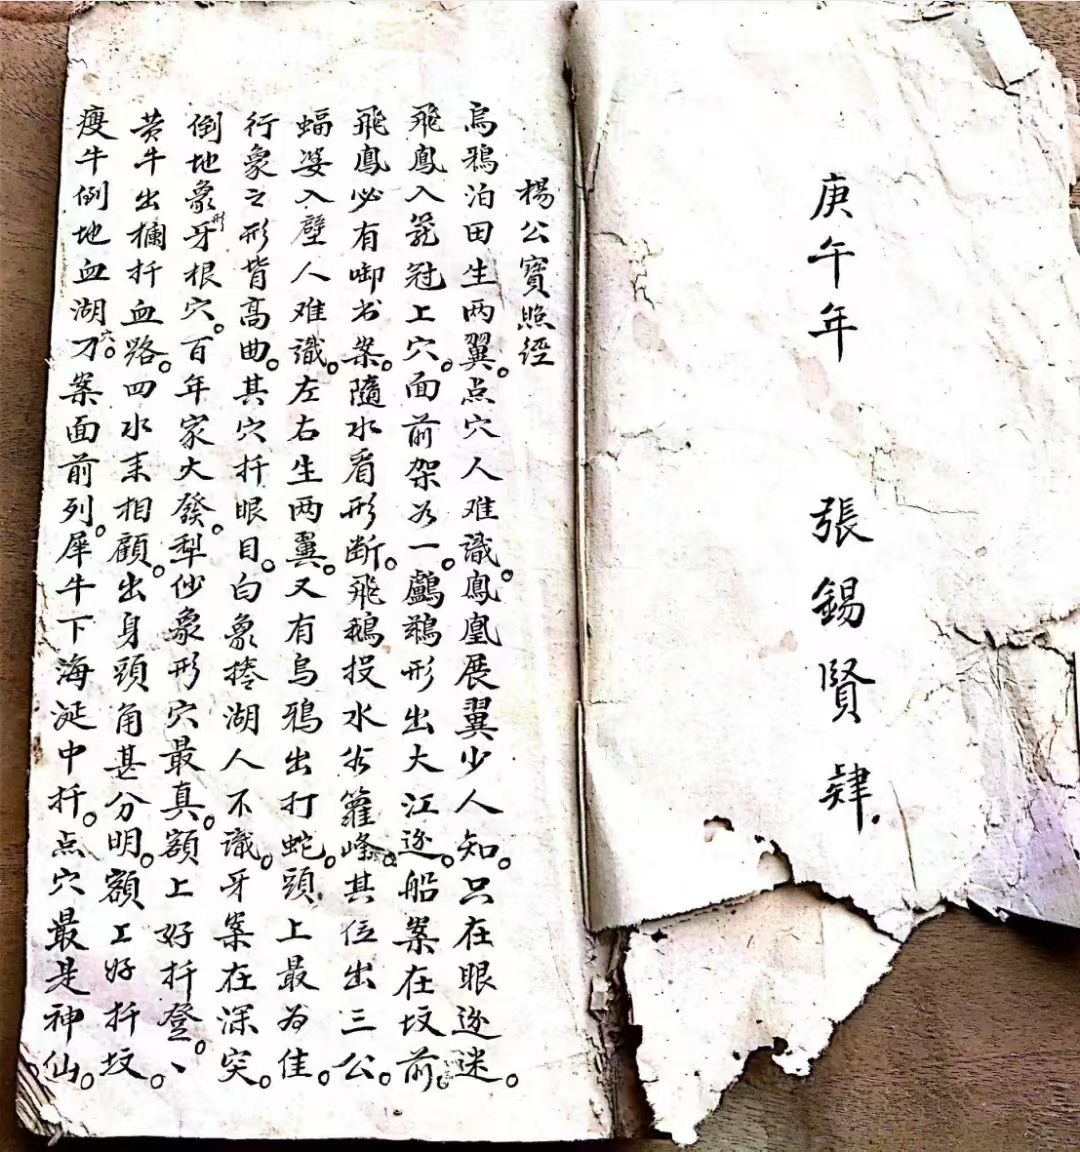 庚午年 張錫賢肄
楊公寶照經
烏鴉泊田生两翼。点穴人难識。鳳凰展翼少人知。只在眼迯迷。
飛鳳入篭冠上穴。面前架为一。鸕鶿形出大江迯。船案在坟前。
飛鳳必有啣书案。隨水看形断。飛鵝投水峰其位出三公。
蝠婆入壁人难識。左右生两翼。又有烏鴉出打蛇。頭上最为佳。
行象之形背高曲。其穴扦眼目。白象捲湖人不識。牙案在深突。
倒地象形牙根穴。百年家大發。犁象形穴最真。額上好扦登。
黄牛出欄扦血路。四水来相顧。出身頭角甚分明。額上好扦坟。
瘦牛倒地血湖穴。刀案面前列。犀牛下海涎中扦。点穴最是神仙。